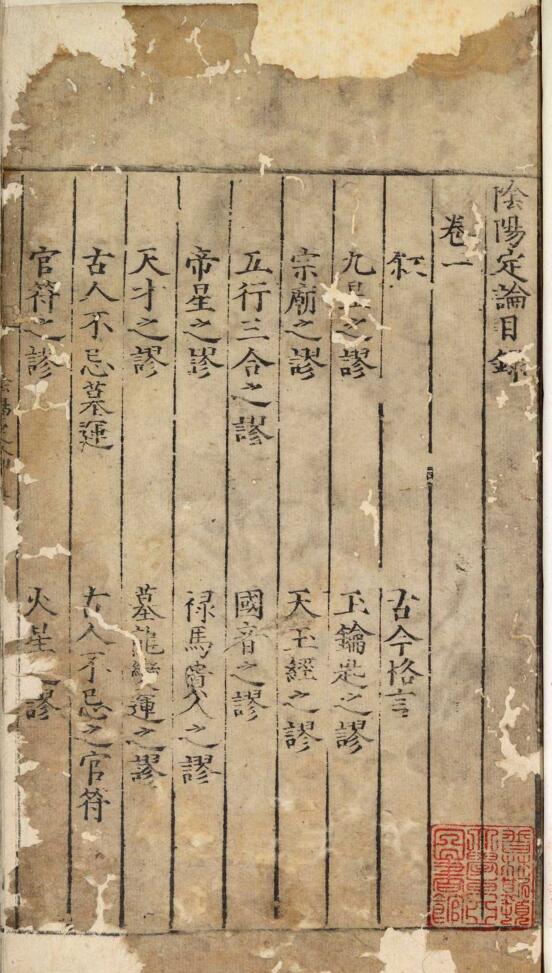 陰陽定論目錄
卷一
叙 古今格言
九星之謬 玉鑰匙之謬
宗廟之謬 天玉經之謬
五行三合之謬 國音之謬
帝星之謬 禄馬貴人之謬
天才之謬 墓龍變運之謬
古人不忌墓運 古人不忌之官符
官符之謬 火星之謬
普林斯頓
大學東亞
圖書館